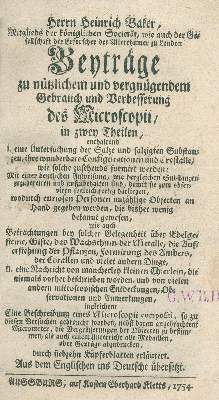 Herrn Heinrich Baker,
Mitglieds der königlichen Societät, wie auch der Ge-
sellschaft der Erforscher der Alterthümer zu London
Beyträge
zu nützlichem und vergnügendem
Gebrauch und Verbesserung
des Microscopii,
in zwey Theilen,
enthaltend
I. eine Untersuchung der Salze und salzigten Substan-
zen, ihre wunderbare Configurationen und Crystalle,
wie solche zusehends formiret werden:
Mit einer deutlichen Anweisung, wie dergleichen Substanzen
zuzubereiten und
wodurch curiosen Personen unzählige Objecten an
Hand gegeben werden, die bisher wenig
bekannt gewesen,
wie auch
Betrachtungen bey solcher Gelegenheit über Edelge-
steine, Gifte, das Wachsthum der Metalle, die Auf-
erstehung der Pflanzen, Formirung des Ambers,
der Corallen und vieler andern Dinge.
II. eine Nachricht von mancherley kleinen Thierlein, die
niemals vorher beschrieben worden, und von vielen
andern microscopischen Entdeckungen, Ob-
servationen und Anmerkungen,
Eine Beschreibung eines Microscopii compositi, so zu
diesen Versuchen gebraucht worden, nebst darzu
Micrometer, die Vergrösserungen der Objecten zu bestim-
men, als auch einem Unterricht alte Medaillen,
oder Gepräg abzudrucken,
durch siebzehn Kupferblatten erläutert.
Aus dem Englischen ins Deutsche übersetzt.
AUGSBURG, auf Kosten Eberhard Kletts, 1754.